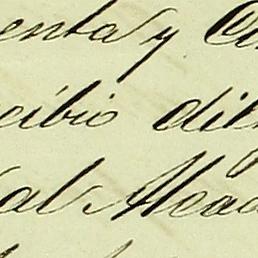 enta y
cibio dil
al Alcad